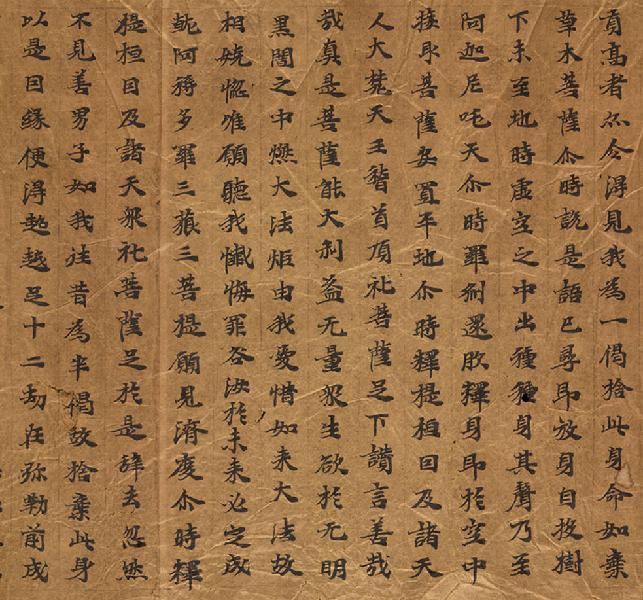 貢高者亦令得見我為一偈捨此身命如棄
草木菩薩尒時說是語已尋即放身自投樹
下未至地時虛空之中出種種身其聲乃至
阿迦尼吒天尒時羅剎還復釋身即於空中
接取菩薩安置平地尒時釋提桓因及諸天
人大梵天王稽首頂礼菩薩足下讚言善哉
哉真是菩薩能大利益无量眾生欲於无明
黑闇之中燃大法炬由我愛惜如來大法故
相嬈惱唯願聽我懺悔罪咎汝於未來必定成
就阿耨多羅三藐三菩提願見濟度尒時釋
提桓因及諸天眾礼菩薩足於是辭去忽然
不見善男子如我往昔為半偈故捨棄此身
以是因緣便得超越足十二劫在弥勒前成